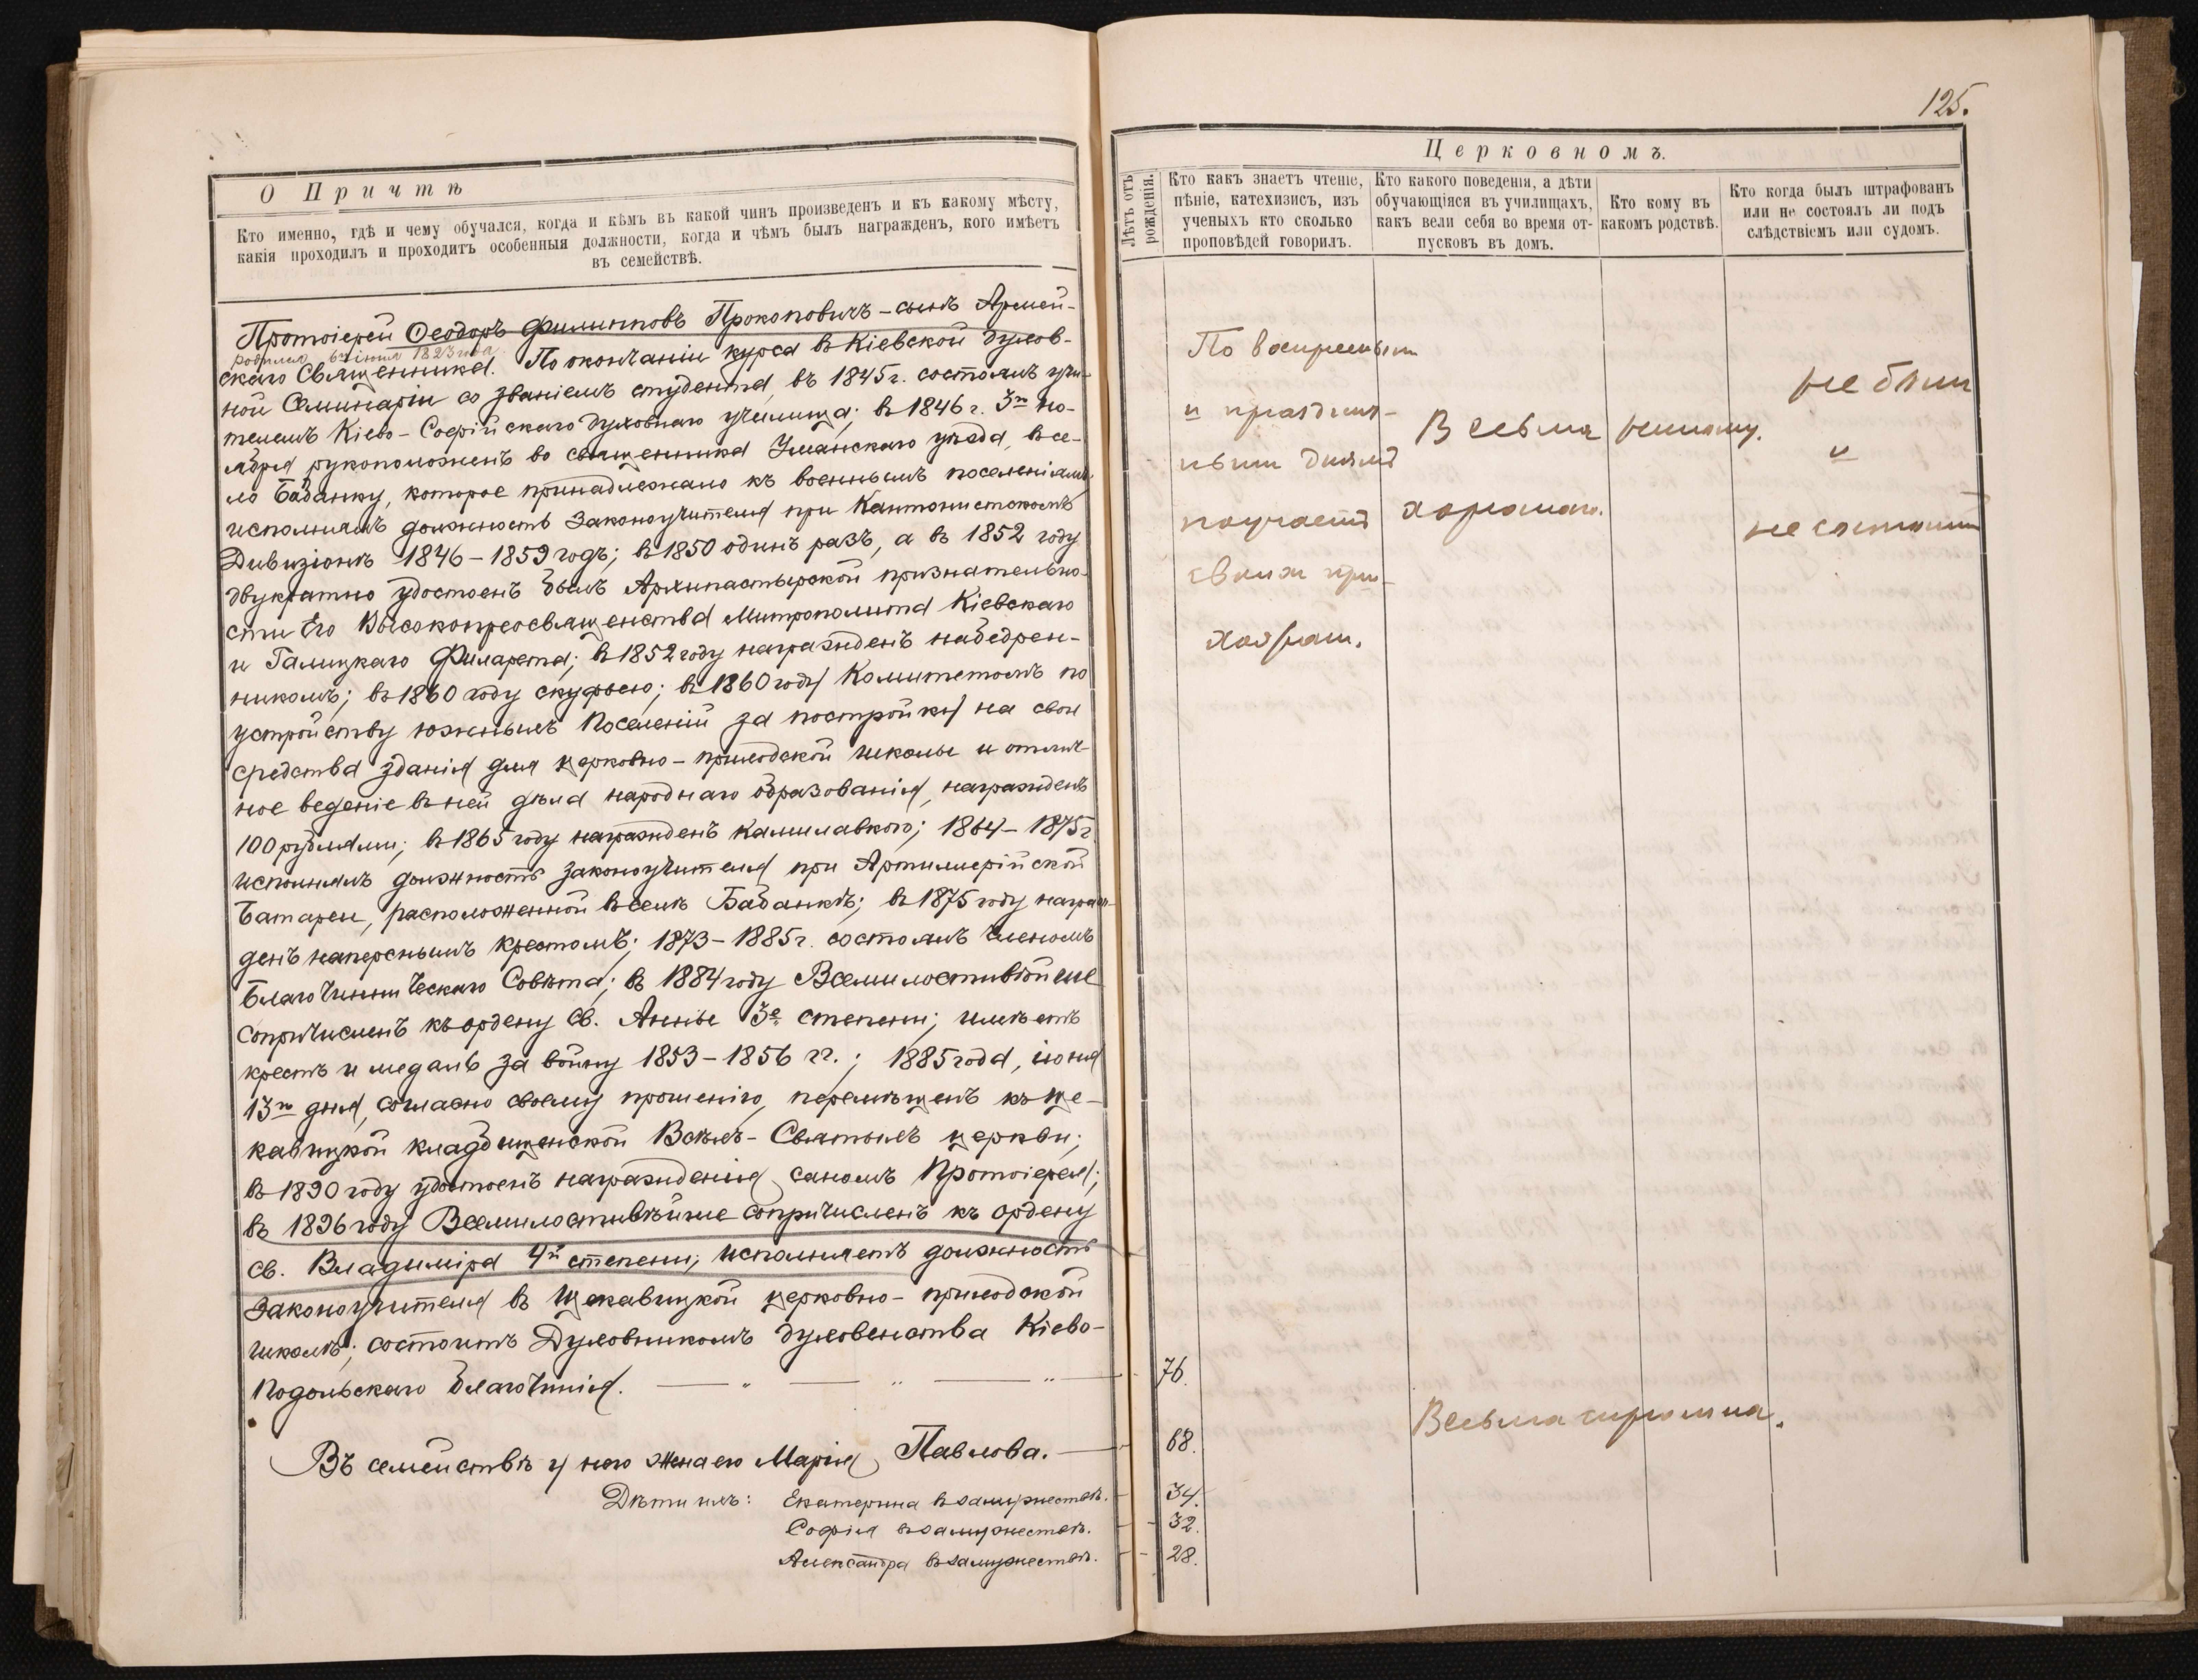 125.
О Причтѣ
Кто именно, гдѣ и чему обучался, когда и кѣмъ въ какой чинъ произведенъ и къ какому мѣсту,
какія проходилъ и проходитъ особенныя должности, когда и чѣмъ былъ награжденъ, кого имѣетъ
въ семействѣ.
Протоіерей Ѳеодоръ Филипповъ Прокоповичъ – сынъ Армей-
родился 6го іюня 1823 года
скаго Священника. По окончаніи курса въ Кіевской Духов-
ной Семинаріи со званіемъ студента, въ 1845 г. состоялъ учи-
телемъ Кіево-Софійскаго духовнаго училища; въ 1846 г. 3го но-
ября рукоположенъ во священника Уманскаго уѣзда, въ се-
ло Бабанку, которое принадлежало къ военнымъ поселеніямъ
исполнялъ должность Законоучителя при Кантонистскомъ
Дивизіонѣ 1846–1859 годъ; въ 1850 одинъ разъ, а въ 1852 году
двукратно удостоенъ былъ Архипастырской признательно-
сти Его Высокопреосвященства Митрополита Кіевскаго
и Галицкаго Филарета; въ 1852 году награжденъ набедрен-
никомъ; въ 1860 году скуфьею; въ 1860 году Комитетомъ по
устройству южныхъ Поселеній за постройку на свои
средства зданія для церковно-приходской школы и отлич-
ное веденіе въ ней дѣла народнаго образованія, награжденъ
100 рублями; въ 1865 году награжденъ камилавкою; 1864–1875 г.
исполнялъ должность законоучителя при Артиллерійской
батареи, расположенной въ селѣ Бабанкѣ; въ 1875 году награж-
денъ наперснымъ крестомъ; 1873–1885 г. состоялъ членомъ
Благочинническаго Совѣта; въ 1884 году Всемилостивѣйше
сопричисленъ къ ордену Св. Анны 3й степени; имѣетъ
крестъ и медаль за войну 1853–1856 гг.; 1885 года, іюня
13го дня, согласно своему прошенію, перемѣщенъ къ Ще-
кавицкой кладбищенской Всѣхъ-Святыхъ церкви;
въ 1890 году удостоенъ награжденія саномъ Протоіерея;
въ 1896 году Всемилостивѣйше сопричисленъ къ ордену
св. Владиміра 4й степени; исполняетъ должность
Законоучителя въ Щекавицкой церковно-приходской
школѣ; состоитъ Духовникомъ духовенства Кіево-
Подольскаго благочинія. — " — " — " —
Въ семействѣ у него жена его Марія Павлова. —
Дѣти ихъ: Екатерина въ замужествѣ.
Софія въ замужествѣ.
Александра въ замужествѣ.
Церковномъ.
Лѣтъ отъ
рожденія.
Кто какъ знаетъ чтеніе,
пѣніе, катехизисъ, изъ
ученыхъ кто сколько
проповѣдей говорилъ.
Кто какого поведенія, а дѣти
обучающіяся въ училищахъ,
какъ вели себя во время от-
пусковъ въ домъ.
Кто кому въ
какомъ родствѣ.
Кто когда былъ штрафованъ
или не состоялъ ли подъ
слѣдствіемъ или судомъ.
По воскреснымъ
и празднич-
нымъ днямъ
поучаетъ
своихъ при-
хожанъ.
Весьма
хорошаго.
никому.
не былъ
и
не состоитъ
76.
68.
Весьма скромна.
34.
32.
28.